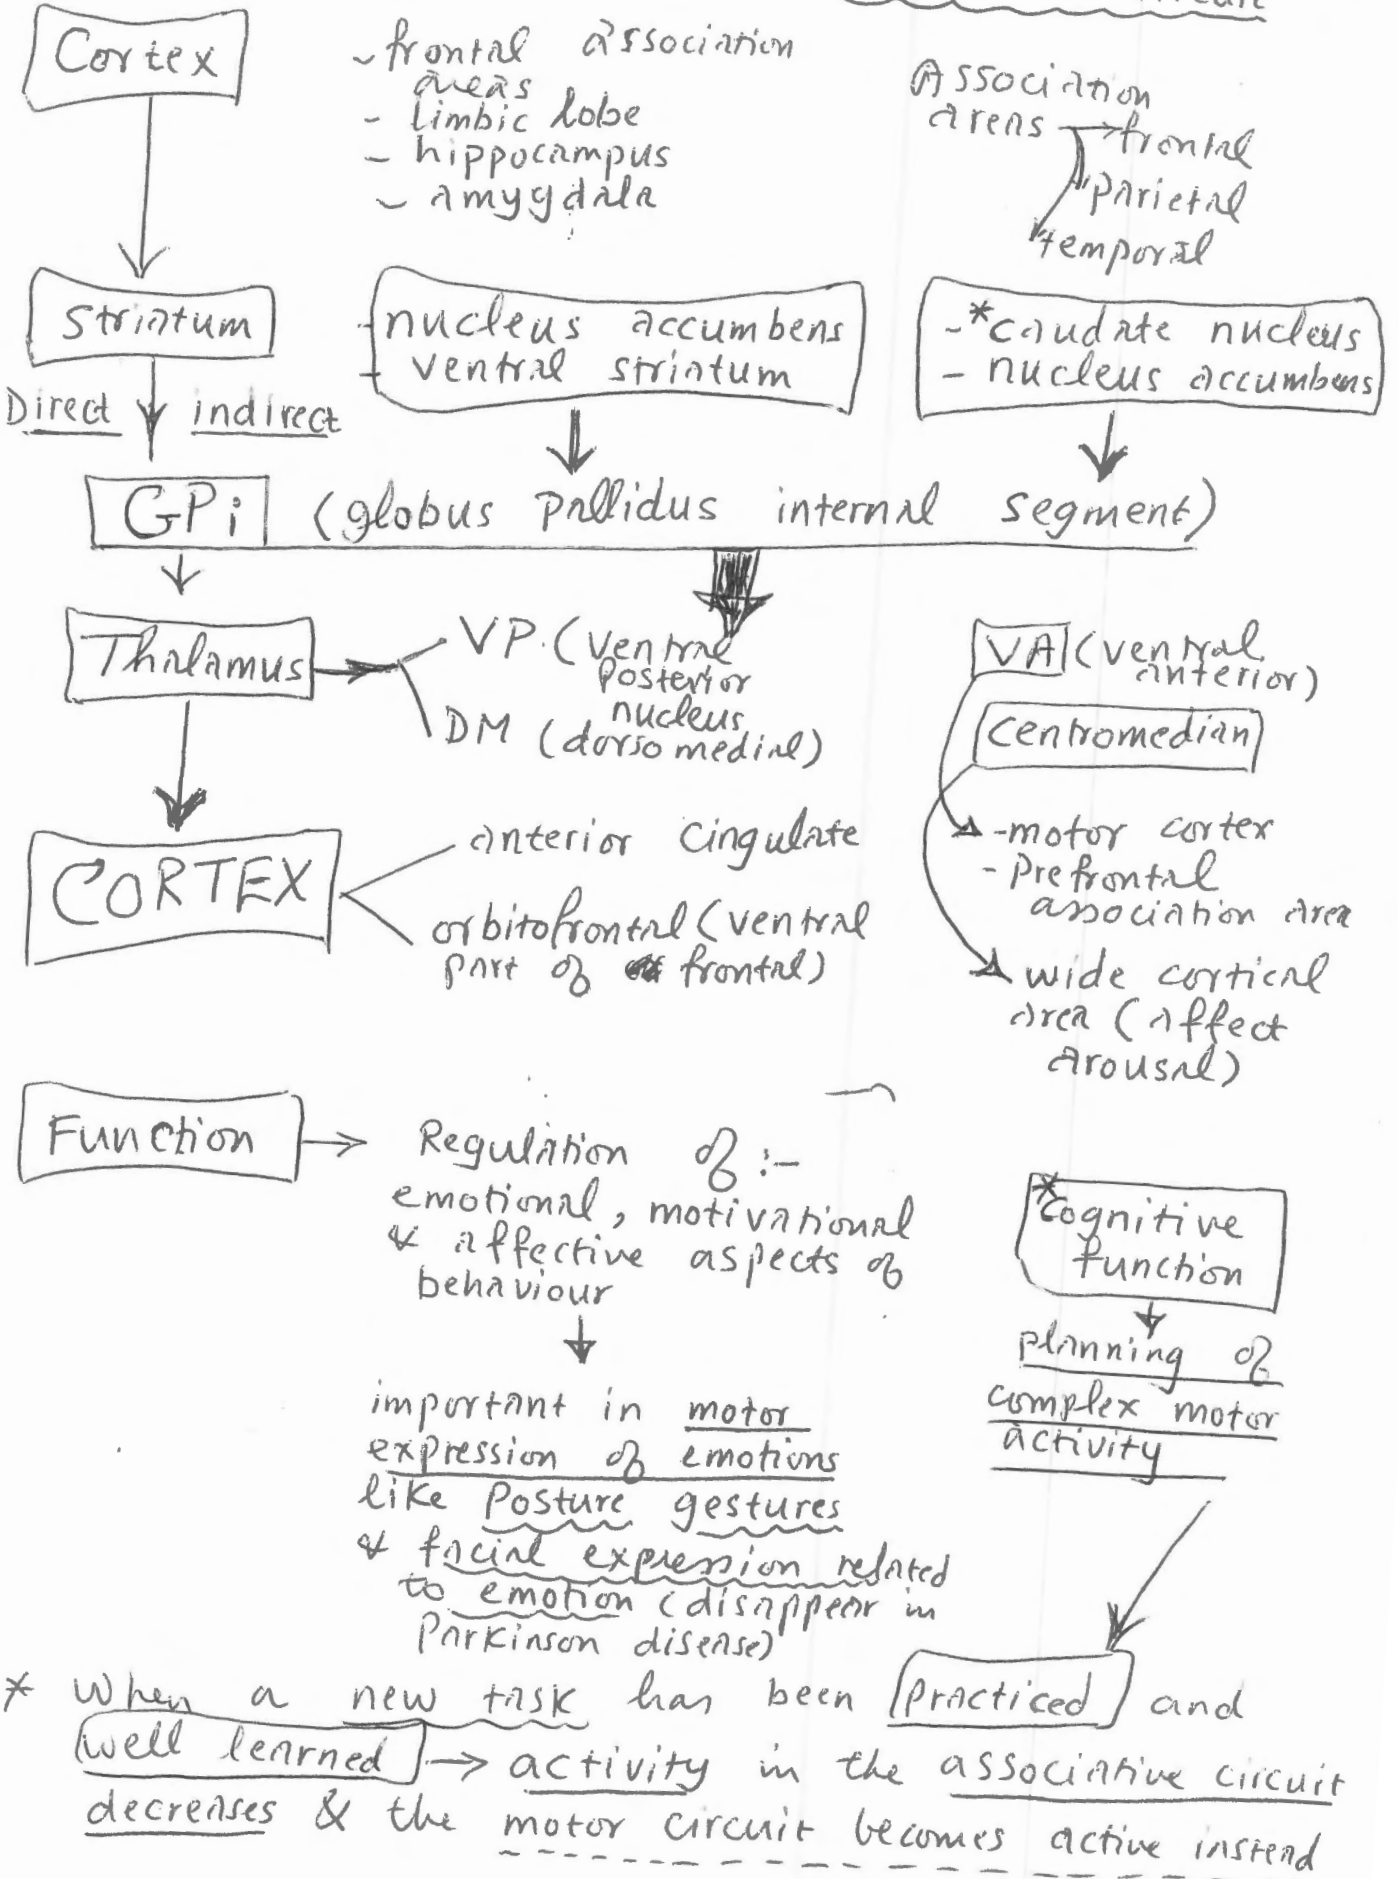 Cortex
- frontal association
areas
- limbic lobe
- hippocampus
- amygdala
Association
areas → frontal
parietal
temporal
striatum
- nucleus accumbens
- ventral striatum
-*caudate nucleus
- nucleus accumbens
Direct indirect
GPi (globus pallidus internal segment)
Thalamus
VP. (ventral
posterior
nucleus
DM (dorsomedial)
VA (ventral
anterior)
Centromedian
CORTEX
anterior cingulate
orbitofrontal (ventral
part of frontal)
-motor cortex
- Prefrontal
association area
wide cortical
area (affect
arousal)
Function → Regulation of :-
emotional, motivational
& affective aspects of
behaviour
important in motor
expression of emotions
like Posture gestures
& facial expression related
to emotion (disappear in
Parkinson disease)
*Cognitive
function
planning of
complex motor
activity
* When a new task has been practiced and
well learned → activity in the associative circuit
decreases & the motor circuit becomes active instead